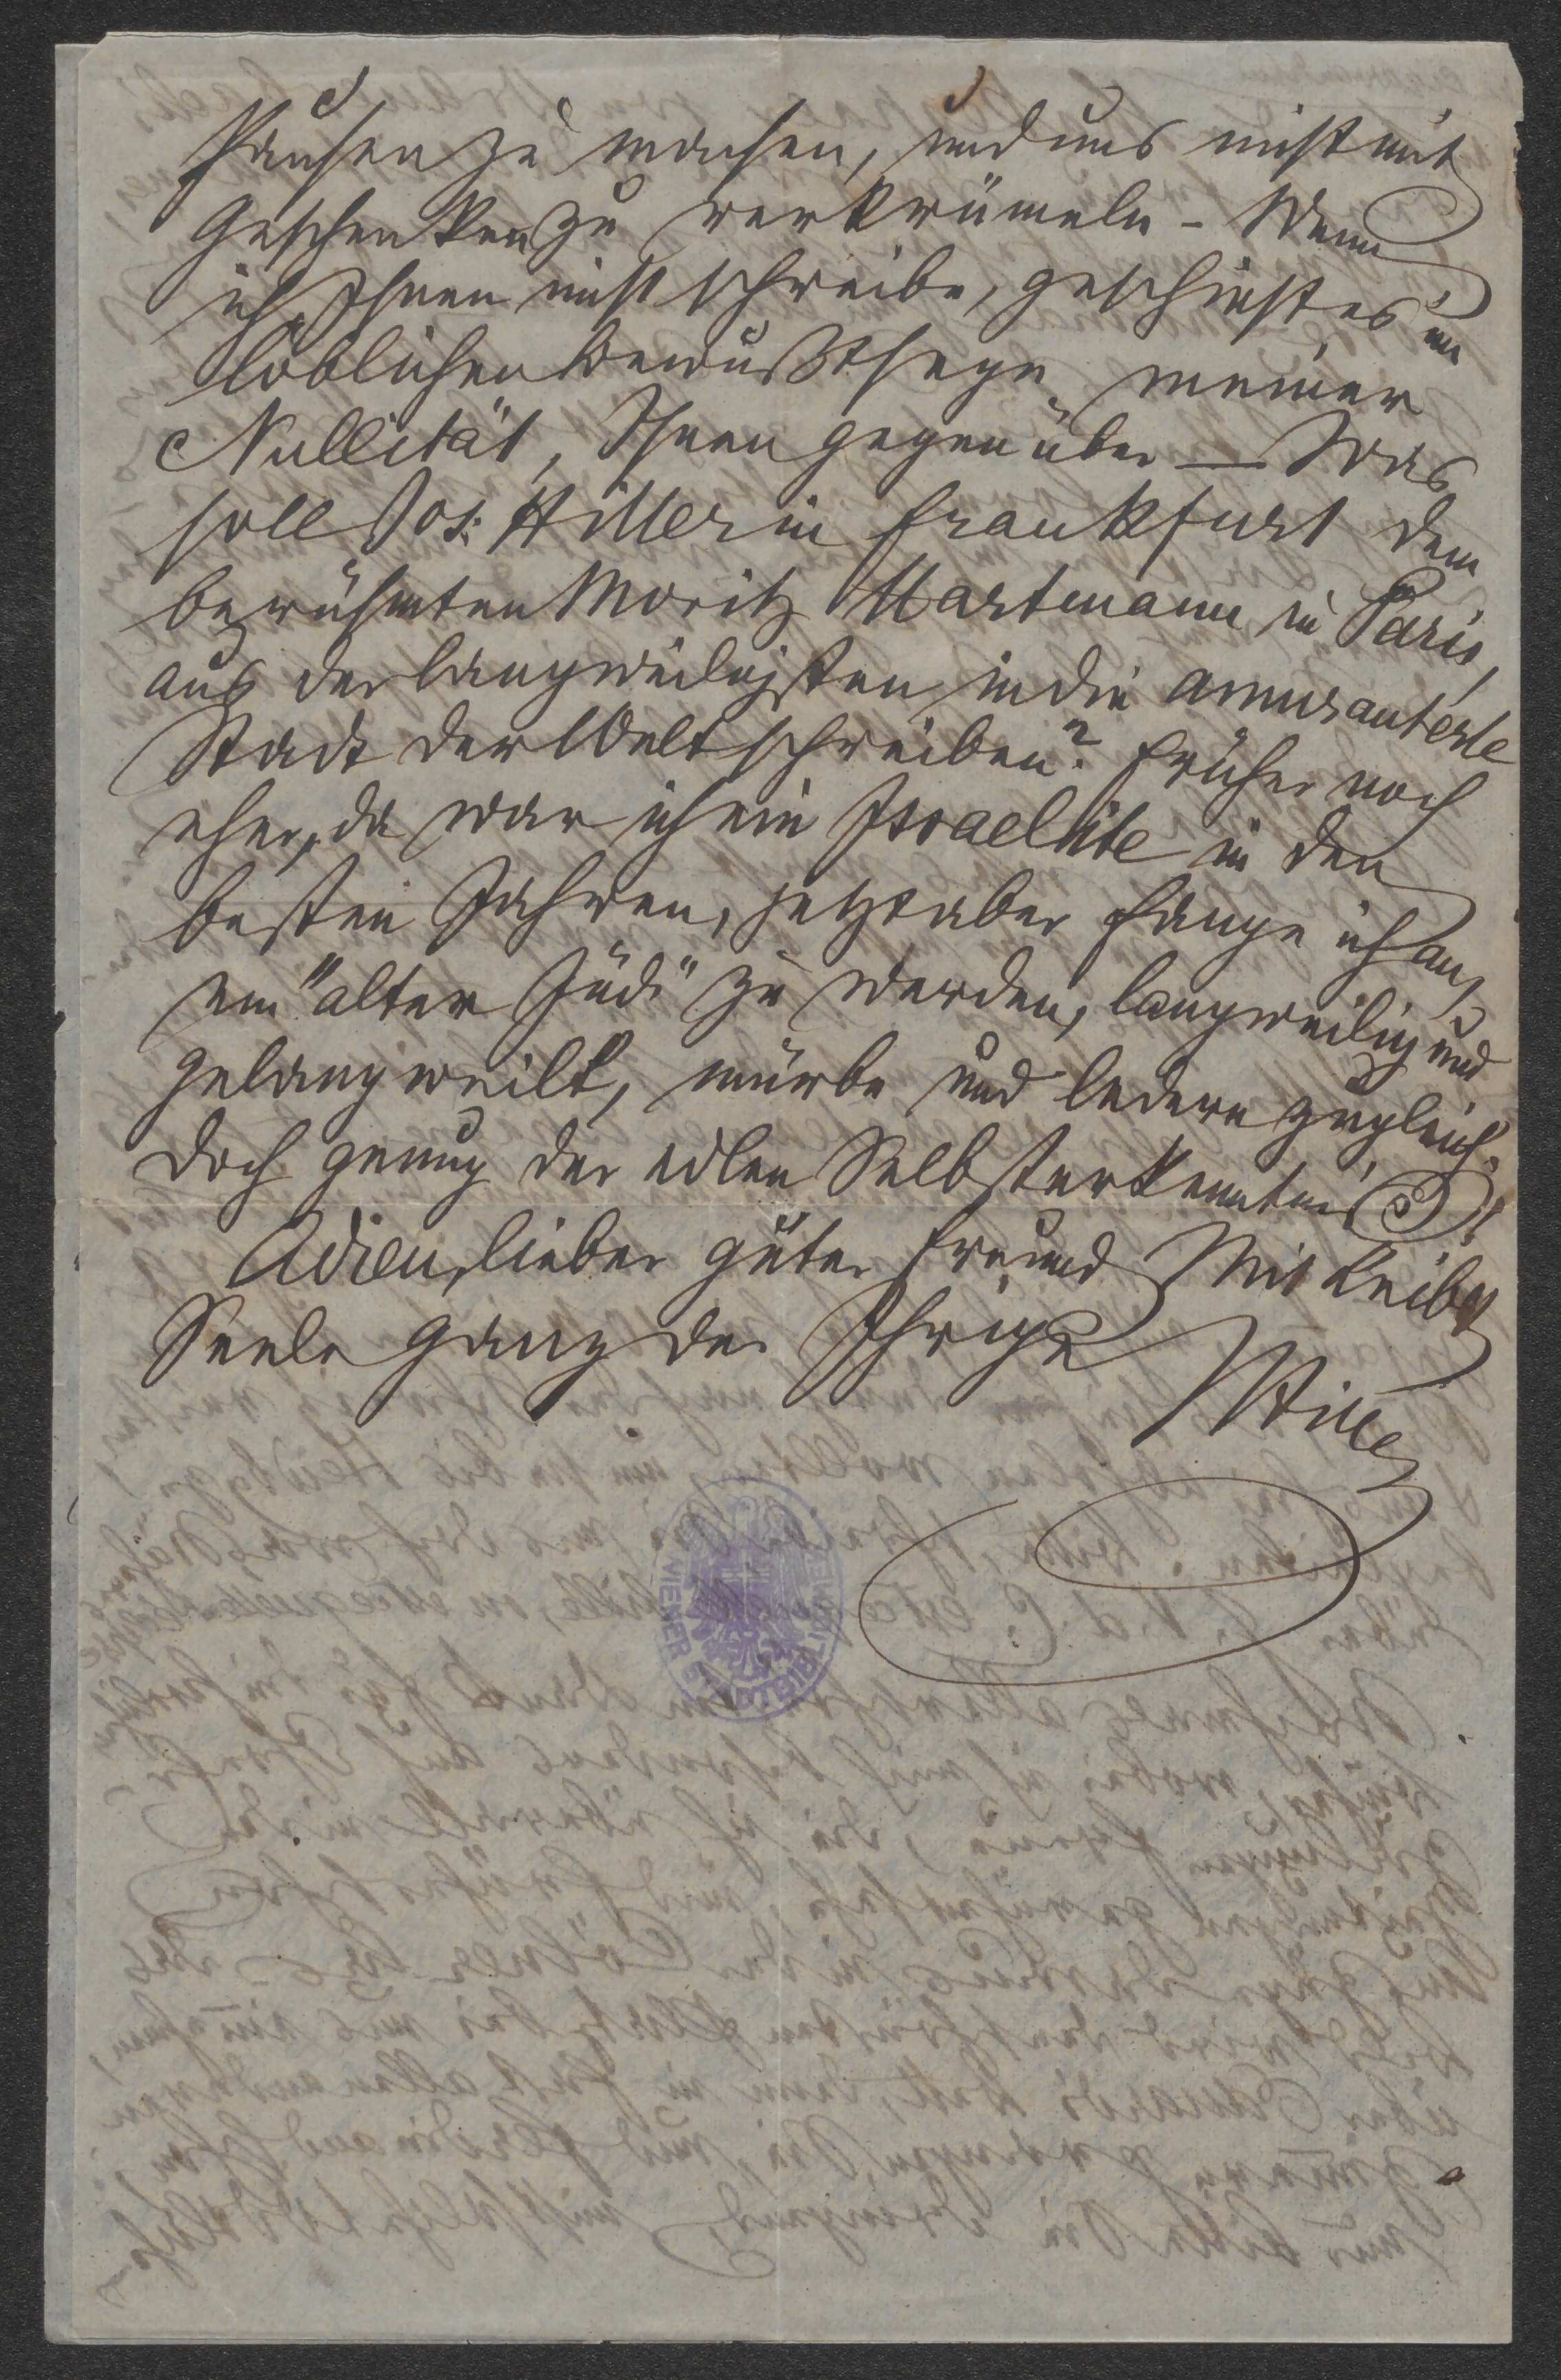 Pausen zu machen, und uns nicht mit
Geschenken zu verkrümeln - Wenn
ich Ihnen nicht schreibe, geschieht es im
löblichen Bewußtseyn meiner
Nullität, Ihnen gegenüber — Was
soll Jos: Hiller in Frankfurt dem
berühmten Moritz Hartmann in Paris,
aus der langweiligsten in die amusanteste
Stadt der Welt schreiben? Früher noch
eher, da war ich ein Israelite in den
besten Jahren, jetzt aber fange ich an,
ein "alter Jüd" zu werden, langweilig und
gelangweilt, mürbe und ledern zugleich.
Doch genug der edlen Selbsterkenntniß!
Adieu, lieber guter Freund Mit Leib u
Seele ganz der Ihrige
Hiller
WIENER STADTBIBLIOTHEK